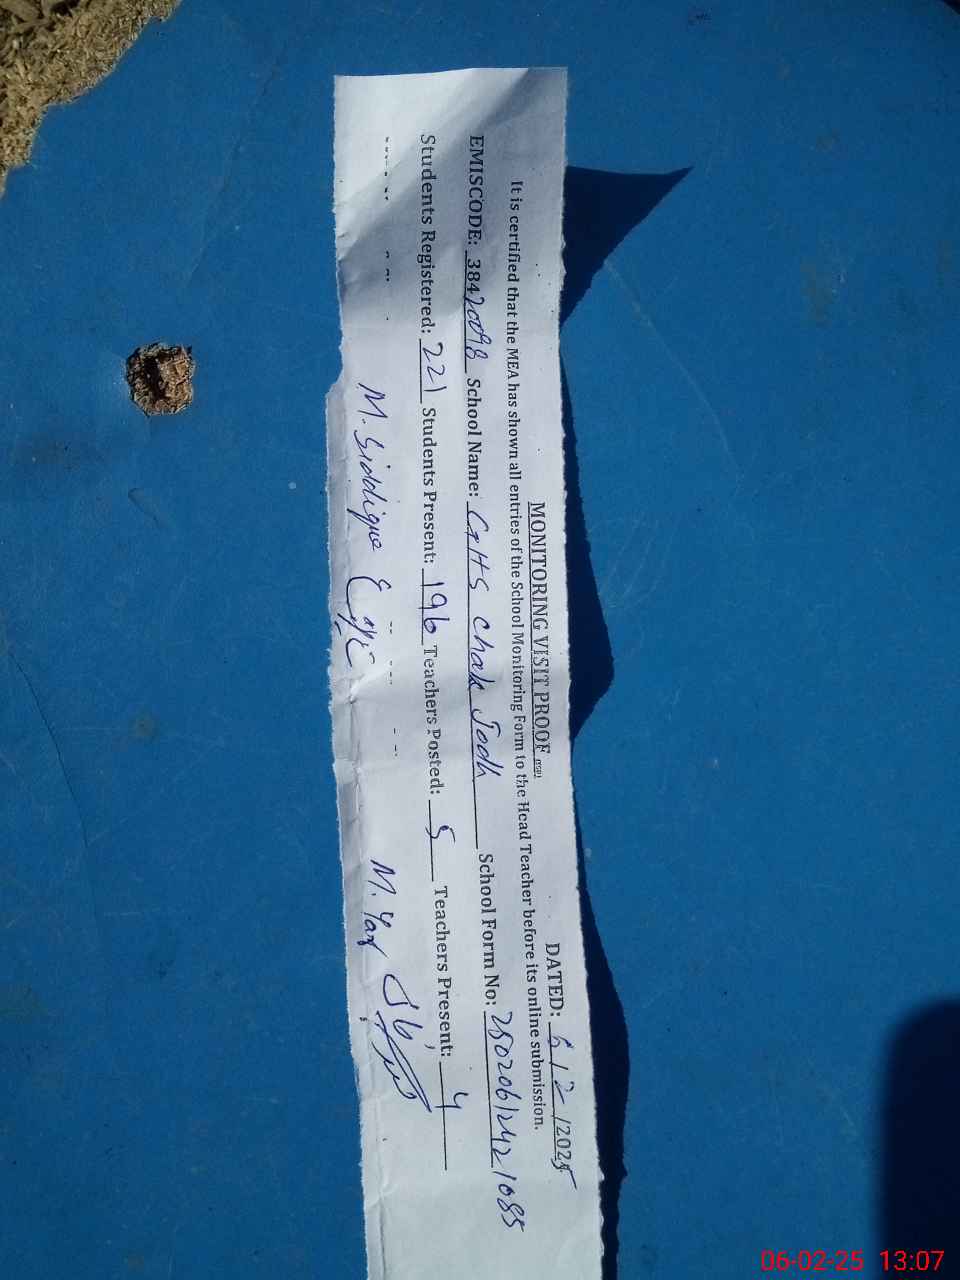 MONITORING VISIT PROOF
DATED: 6/2/2025
It is certified that the MEA has shown all entries of the School Monitoring Form to the Head Teacher before its online submission.
EMISCODE: 38420098 School Name: GHS Chak Jodh School Form No: 25020612421085
Students Registered: 221 Students Present: 196 Teachers Posted: 5 Teachers Present: 4
M. Siddique
M. Yar
06-02-25 13:07